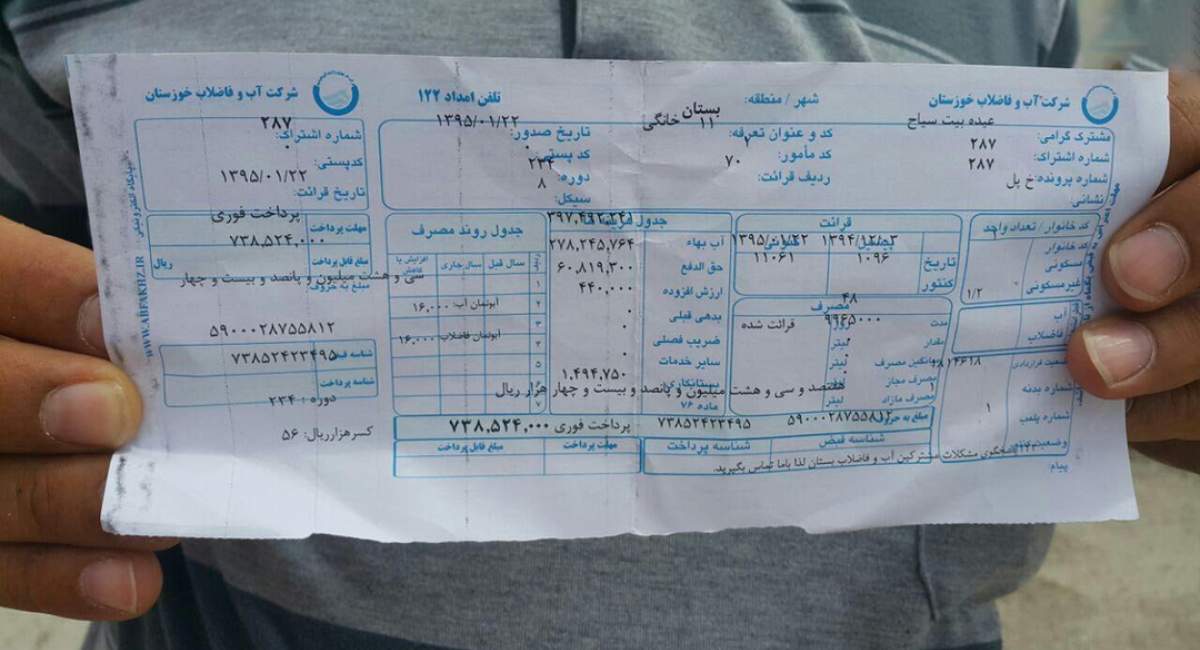 شرکت آب و فاضلاب خوزستان
شهر / منطقه: بستان
تلفن امداد ۱۲۲
مشترک گرامی: عیده بیت سیاح
شماره اشتراک: ۲۸۷
شماره پرونده: ۲۸۷
نشانی: خ پل
کد و عنوان تعرفه: ۱۱ خانگی
کد مأمور: ۲
ردیف قرائت: ۷۰
تاریخ صدور: ۱۳۹۵/۰۱/۲۲
کد پستی: ۰
دوره: ۲۳۴
سیکل: ۸
کد خانوار / تعداد واحد
کد خانوار
مسکونی ۱
غیرمسکونی ۱/۲
آب
فاضلاب
شماره بدنه
شماره پلمب ۱
پیام
قرائت
تاریخ ۱۳۹۴/۱۲/۰۳ ۱۳۹۵/۰۱/۲۲
کنتور ۱۰۹۶ ۱۱۰۶۱
مصرف
مدت ۴۸ روز
مقدار ۹۹۶۵۰۰۰ لیتر قرائت شده
میانگین مصرف لیتر
مصرف مجاز
مصرف مازاد لیتر
آب بهاء ۳۹۷,۴۹۲,۲۴۱
حق الدفع ۲۷۸,۲۴۵,۷۶۴
ارزش افزوده ۶۰,۸۱۹,۳۰۰
بدهی قبلی ۴۴۰,۰۰۰
ضریب فصلی ۰
سایر خدمات ۰
بستانکاری ۰
ماده ۷۶ ۱,۴۹۴,۷۵۰
جدول روند مصرف
سال قبل سال جاری افزایش یا کاهش
آبونمان آب: ۱۶,۰۰۰
آبونمان فاضلاب: ۱۶,۰۰۰
مبلغ به حروف: هفتصد و سی و هشت میلیون و پانصد و بیست و چهار هزار ریال
شناسه قبض ۵۹۰۰۰۲۸۷۵۵۸۱۲
شناسه پرداخت ۷۳۸۵۲۴۲۳۴۹۵
مهلت پرداخت پرداخت فوری
مبلغ قابل پرداخت ۷۳۸,۵۲۴,۰۰۰
مشکلات مشترکین آب و فاضلاب بستان لذا باما تماس بگیرید.
شرکت آب و فاضلاب خوزستان
شماره اشتراک: ۲۸۷
کدپستی: ۰
تاریخ قرائت: ۱۳۹۵/۰۱/۲۲
مهلت پرداخت پرداخت فوری
مبلغ قابل پرداخت ۷۳۸,۵۲۴,۰۰۰ ریال
مبلغ به حروف
سی و هشت میلیون و پانصد و بیست و چهار
۵۹۰۰۰۲۸۷۵۵۸۱۲
شناسه قبض
۷۳۸۵۲۴۲۳۴۹۵
شناسه پرداخت
دوره : ۲۳۴
کسرهزارریال: ۵۶
WWW.ABFAKHZ.IR